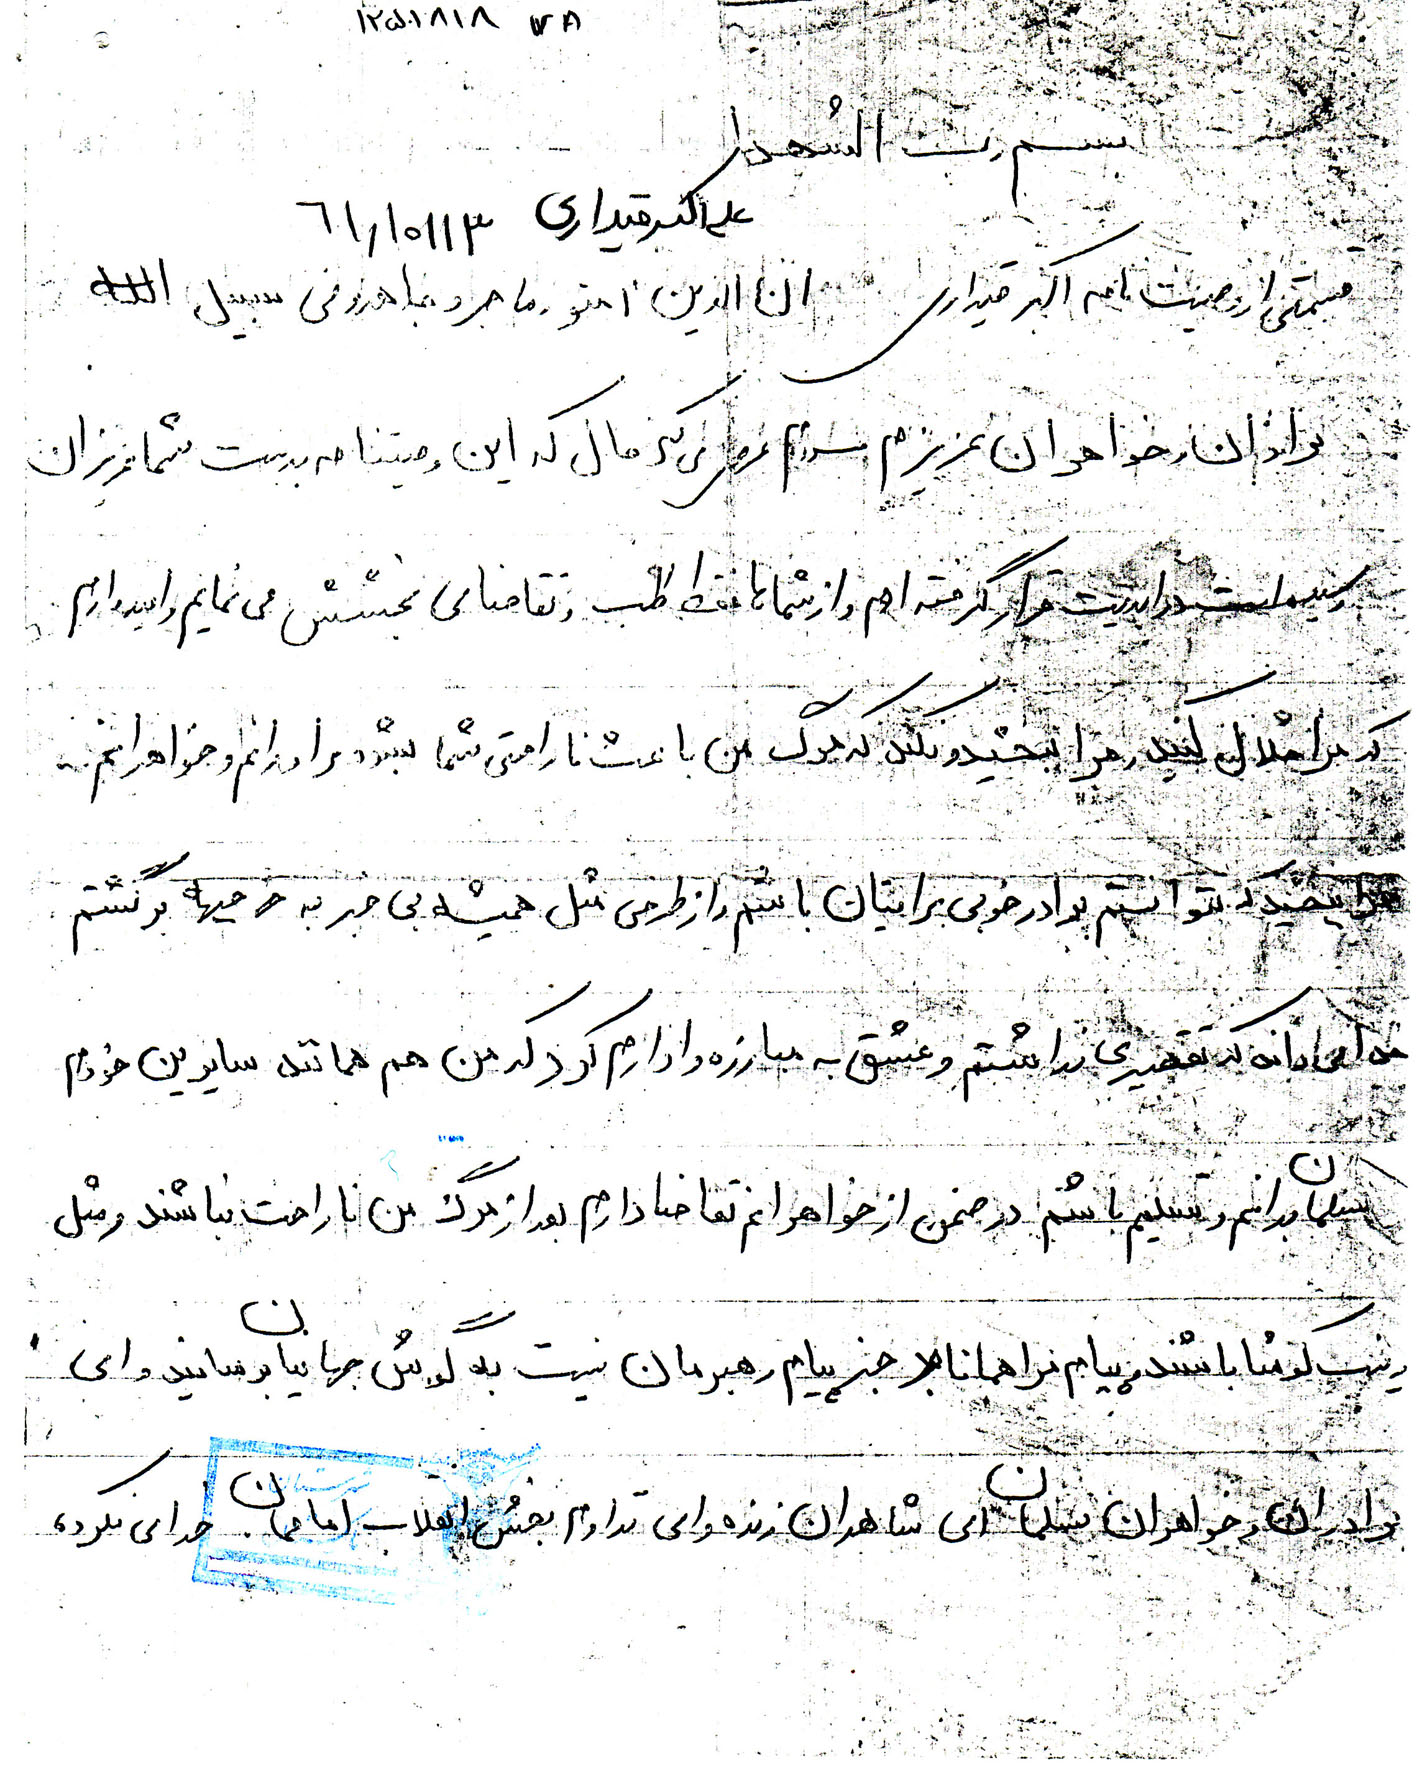 ۱۲۵۰۱۸۱۸
بسم رب الشهداء
علی اکبر قیداری ۶۱/۱۰/۱۳
قسمتی از وصیت نامه اکبر قیداری ان الذین آمنو و هاجرو جاهدو فی سبیل الله
برادران و خواهران عزیزم عرض می کنم حال که این وصیتنامه بدست شما عزیزان
رسیده است در ابدیت قرار گرفته ام و از شماها فقط طلب و تقاضای بخشش می نمایم و امیدوارم
که مرا حلال کنید و مرا ببخشید و نکند که مرگ من باعث ناراحتی شما بشود برادرانم و خواهرانم
مرا ببخشید که نتوانستم برادر خوبی برایتان باشم و از طرفی مثل همیشه بی خبر به جبهه برگشتم
خدا می داند که تقصیری نداشتم و عشق به مبارزه وادارم کرد که من هم همانند سایرین خودم
مسلمان بدانم و تسلیم باشم در ضمن از خواهرانم تقاضا دارم بعد از مرگ من ناراحت نباشند و مثل
زینب کوشا باشند و پیام مرا همانا جز پیام رهبرمان نیست به گوش جهانیان برسانید و ای
برادران و خواهران مسلمان ای شاهدان زنده و ای تداوم بخش انقلاب اماممان خدای نکرده